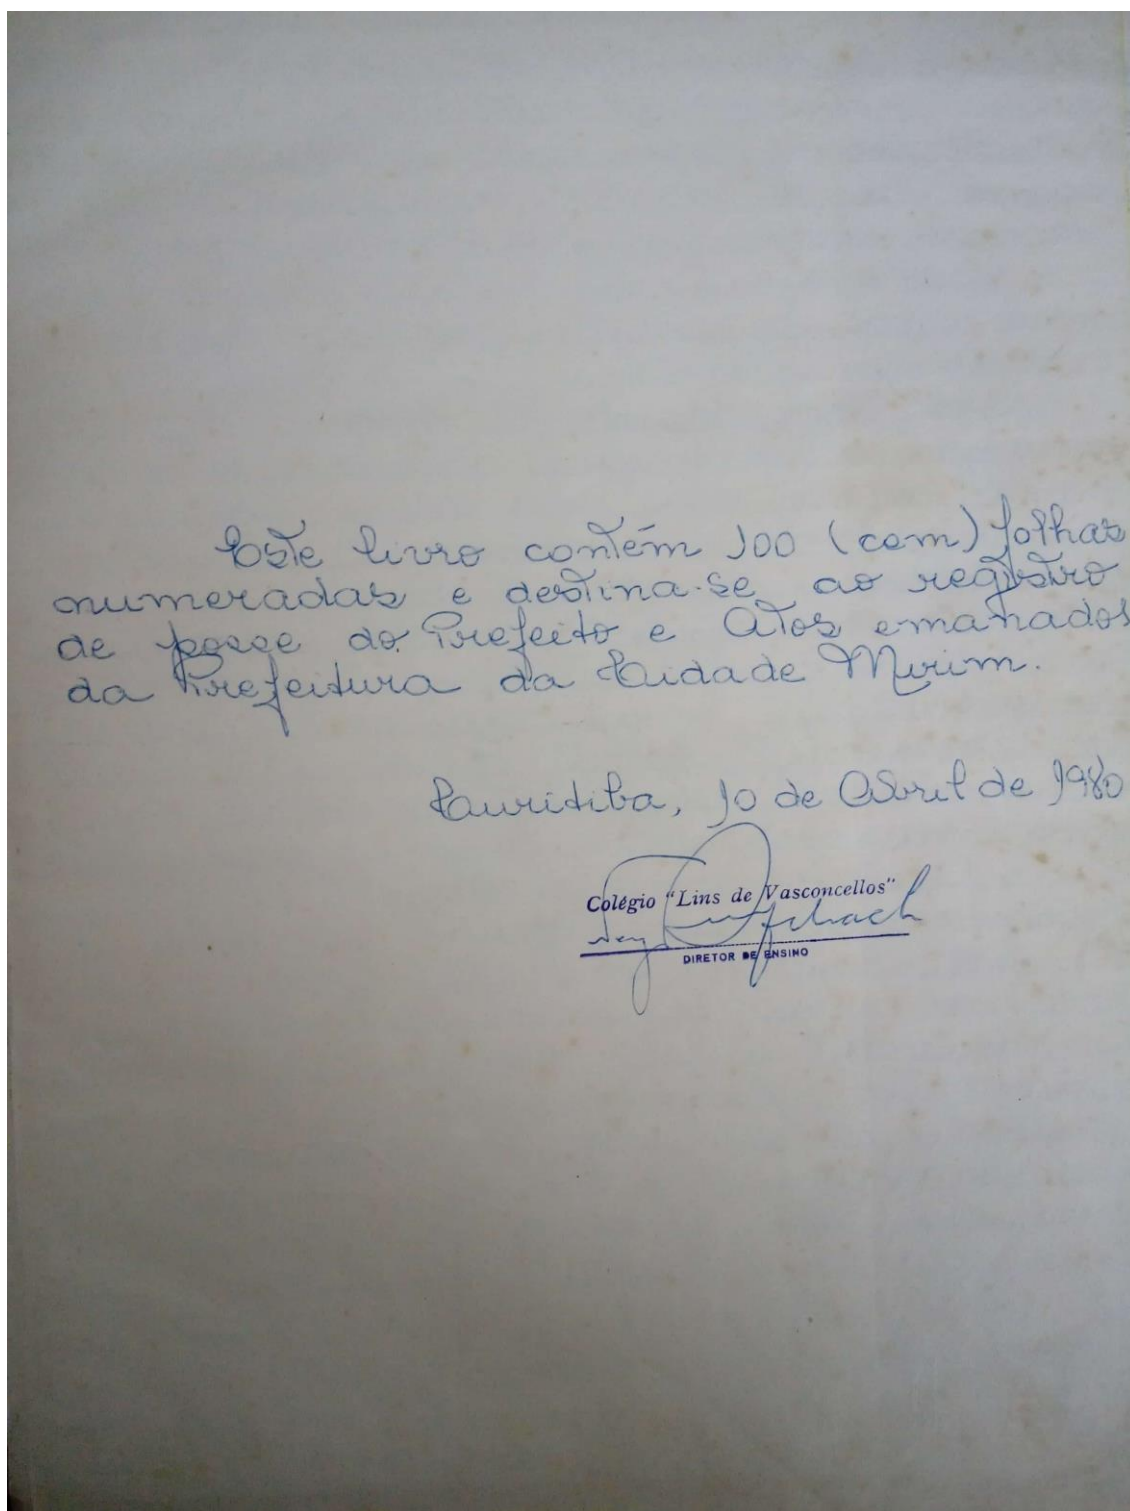 Este livro contém 100 (cem) folhas
numeradas e destina-se ao registro
de posse do Prefeito e Atos emanados
da Prefeitura da Cidade Mirim.
Curitiba, 10 de Abril de 1980
Colégio "Lins de Vasconcellos"
DIRETOR DE ENSINO